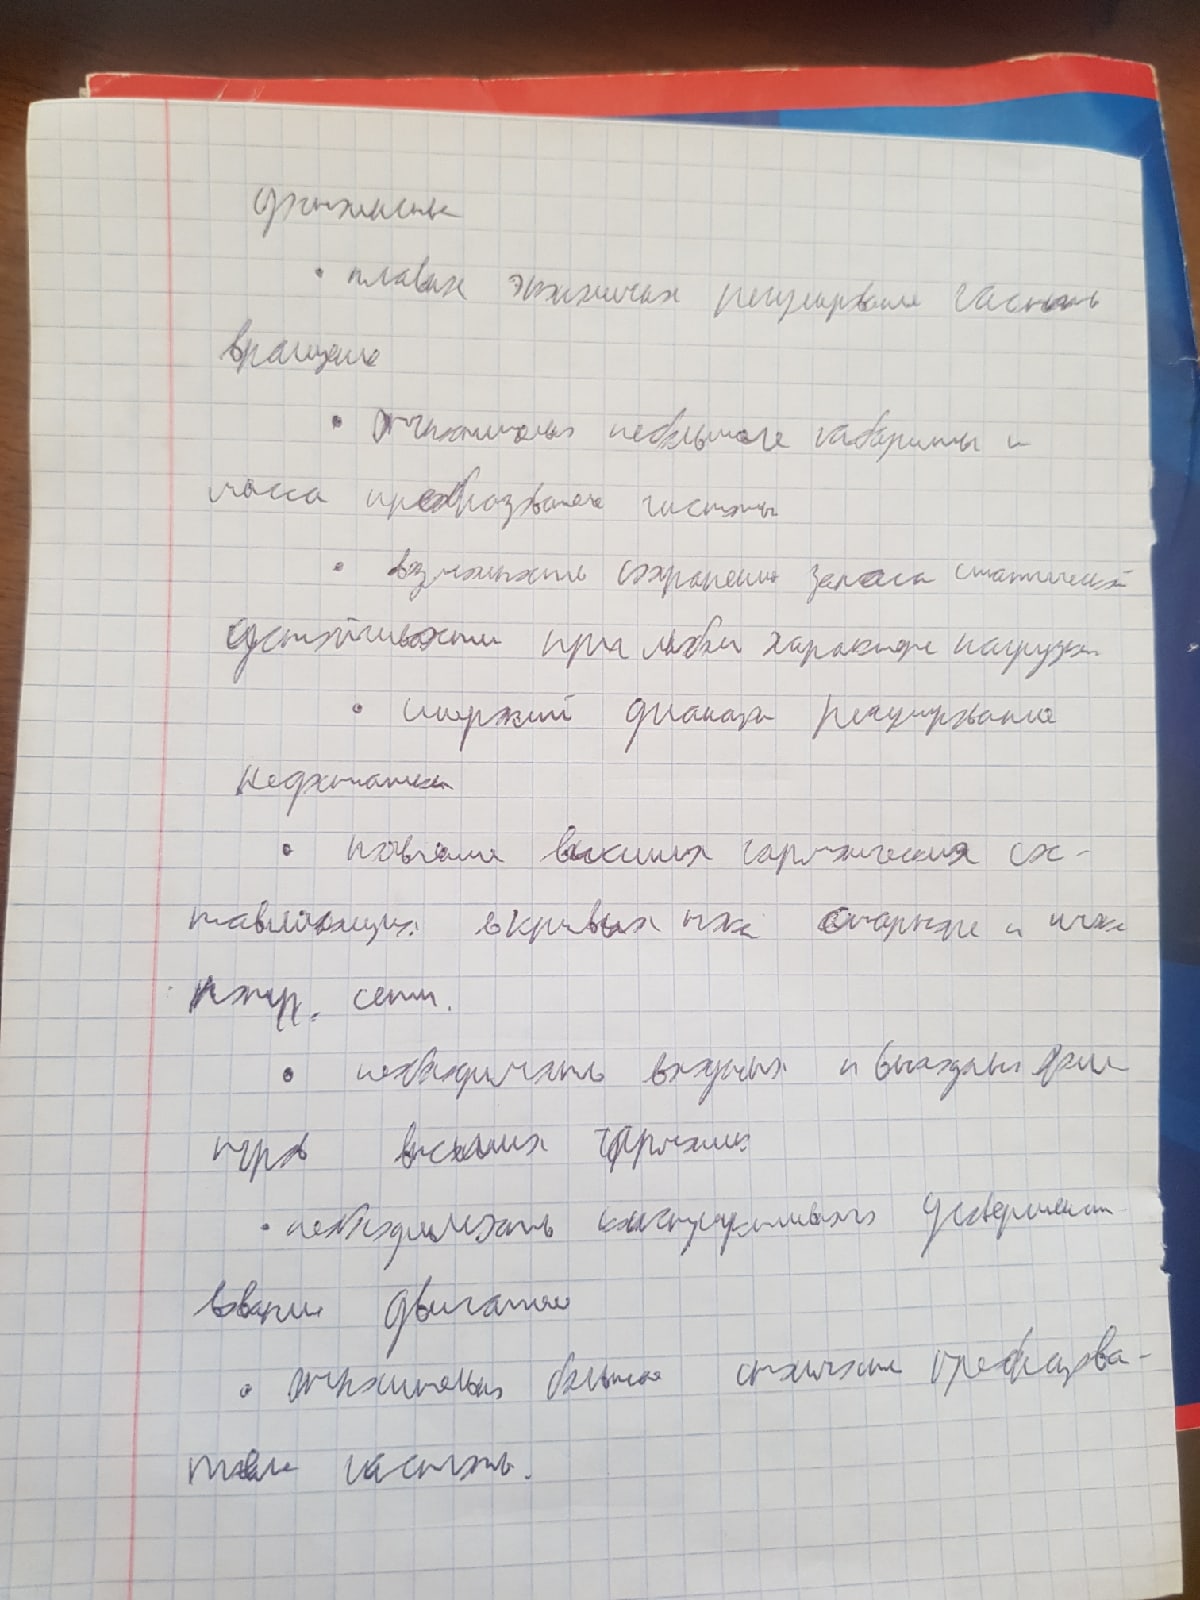 • плавная экономичная регулирование частоты
вращение
• относительно небольшие габариты и
масса преобразователя частоты
• возможность сохранения запаса статической
устойчивости при любом характере нагрузки
• широкий диапазон регулирования
Недостатки
• появление высших гармонических сос-
тавляющих в кривых тока статоре и тока
питающ. сети.
• необходимость входных и выходных филь
тров высших гармоник
• необходимость конструктивного усовершенст
вование двигателя
• относительно большая стоимость преобразова-
теля частоты.